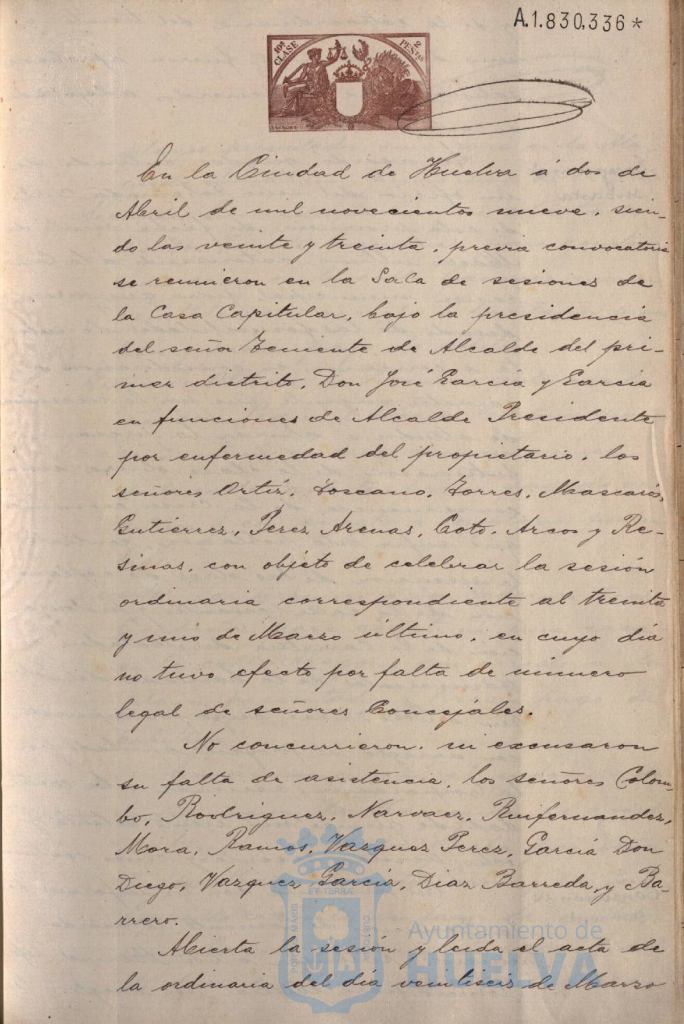 A.1.830.336*
10ª CLASE
2 PESETAS
En la Ciudad de Huelva á dos de
Abril de mil novecientos nueve, sien-
do las veinte y treinta, previa convocatoria
se reunieron en la Sala de sesiones de
la Casa Capitular, bajo la presidencia
del señor Teniente de Alcalde del pri-
mer distrito, Don José García y García
en funciones de Alcalde Presidente
por enfermedad del propietario, los
señores Ortíz, Toscano, Torres, Mascarós,
Gutiérrez, Pérez Arenas, Coto, Arcos y Re-
sinas, con objeto de celebrar la sesión
ordinaria correspondiente al treinta
y uno de Marzo último, en cuyo día
no tuvo efecto por falta de número
legal de señores Concejales.
No concurrieron, ni excusaron
su falta de asistencia, los señores Colom-
bo, Rodriguez, Narvaez, Ruifernandez,
Mora, Ramos, Vazquez Perez, García Don
Diego, Vazquez García, Diaz Barreda, y Ba-
rrero.
Abierta la sesión y leida el acta de
la ordinaria del día veintiseis de Marzo
Ayuntamiento de
HUELVA